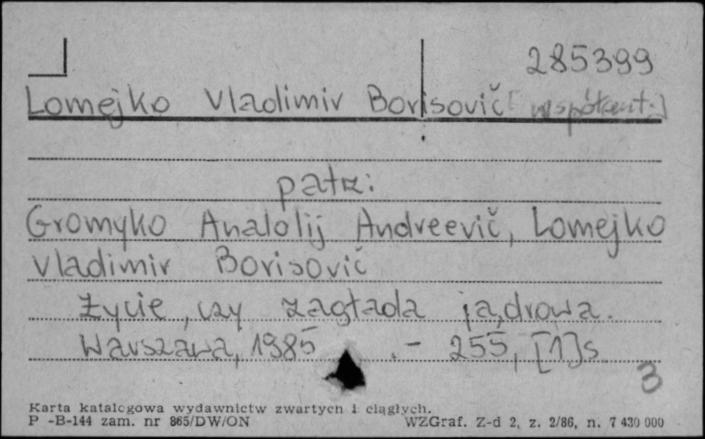 285399
Lomejko Vladimir Borisovič [współaut.]
patrz:
Gromyko Anatolij Andreevič, Lomejko
Vladimir Borisovič
Życie, czy zagłada jądrowa.
Warszawa, 1985 .- 255, [1]s.
3
Karta katalogowa wydawnictw zwartych i ciągłych.
P -B-144 zam. nr 865/DW/ON WZGraf. Z-d 2, z. 2/86, n. 7 430 000